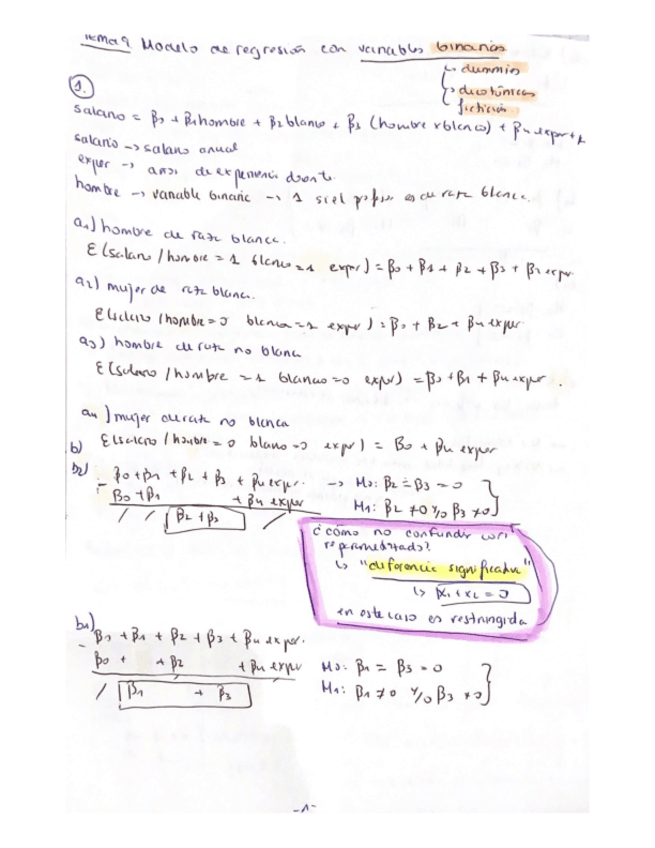 Tema 9 Modelo de regresión con variables binarias
↳ dummies
↳ dicotómicas
ficticias
1.
salario = β0 + β1hombre + β2blanco + β3 (hombre x blanco) + β4 exper + μ
salario → salario anual
exper → años de experiencia docente
hombre → variable binaria → 1 si el profesor es de raza blanca.
a1) hombre de raza blanca.
E(salario / hombre = 1 blanco = 1 exper) = β0 + β1 + β2 + β3 + β4 exper
a2) mujer de raza blanca.
E(salario / hombre = 0 blanco = 1 exper) = β0 + β2 + β4 exper
a3) hombre de raza no blanca
E(salario / hombre = 1 blanco = 0 exper) = β0 + β1 + β4 exper.
a4) mujer de raza no blanca
b) E(salario / hombre = 0 blanco = 0 exper) = β0 + β4 exper
b2) β0 + β1 + β2 + β3 + β4 exper. → H0: β2 = β3 = 0
- β0 + β1 + β4 exper H1: β2 ≠ 0 y/o β3 ≠ 0
/ / β2 + β3 /
¿cómo no confundir con
reparametrizado?
↳ "diferencia significativa"
↳ α1 + α2 = 0
en este caso es restringida
b1)
β0 + β1 + β2 + β3 + β4 exper.
- β0 + + β2 + β4 exper H0: β1 = β3 = 0
/ β1 + β3 H1: β1 ≠ 0 y/o β3 ≠ 0
-1-